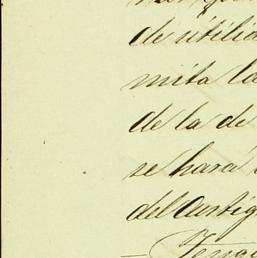 de utilid
mita la
de la de
se hará
del antig
— Teng